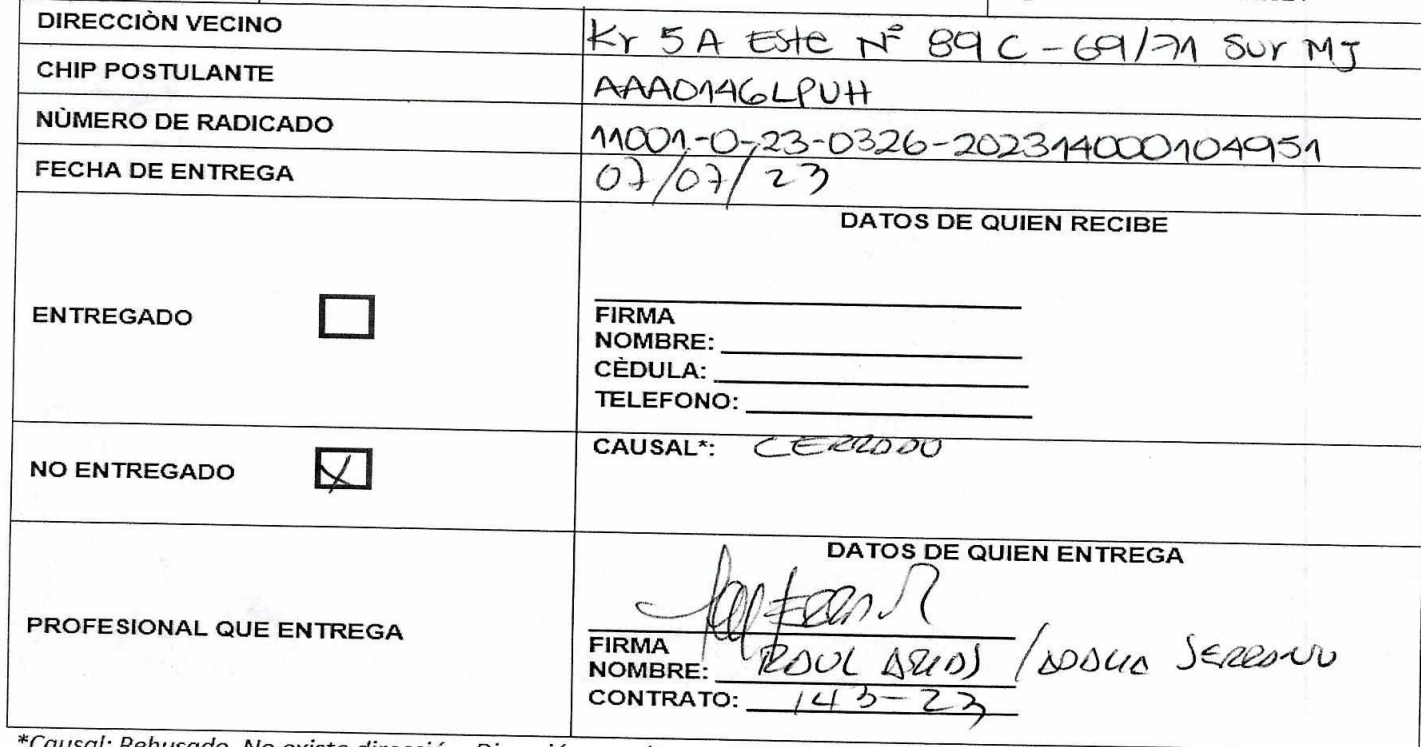 DIRECCIÒN VECINO Kr 5 A Este N° 89 C - 69/71 Sur MJ
CHIP POSTULANTE AAA0146LPUH
NÙMERO DE RADICADO 11001-0-23-0326-20231400010​4951
FECHA DE ENTREGA 07/07/23
DATOS DE QUIEN RECIBE
ENTREGADO
FIRMA
NOMBRE:
CÈDULA:
TELEFONO:
NO ENTREGADO X
CAUSAL*: CERRADO
DATOS DE QUIEN ENTREGA
PROFESIONAL QUE ENTREGA
FIRMA
NOMBRE: RAUL ARIAS / SERRANO
CONTRATO: 143-23
*Causal: Rehusado, No existe dirección, Dirección